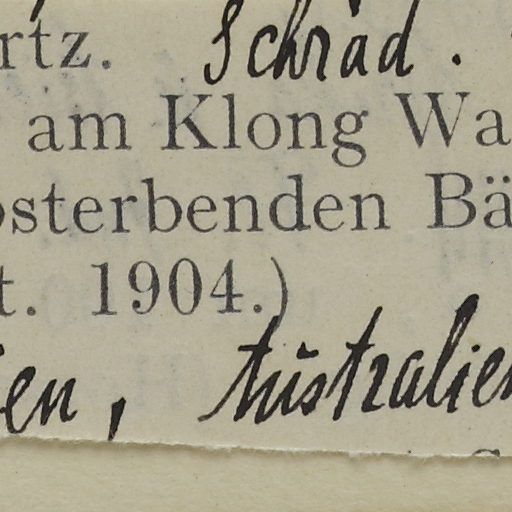 rtz. Schrad.
am Klong Wa
bsterbenden Bä
t. 1904.)
en, Australien